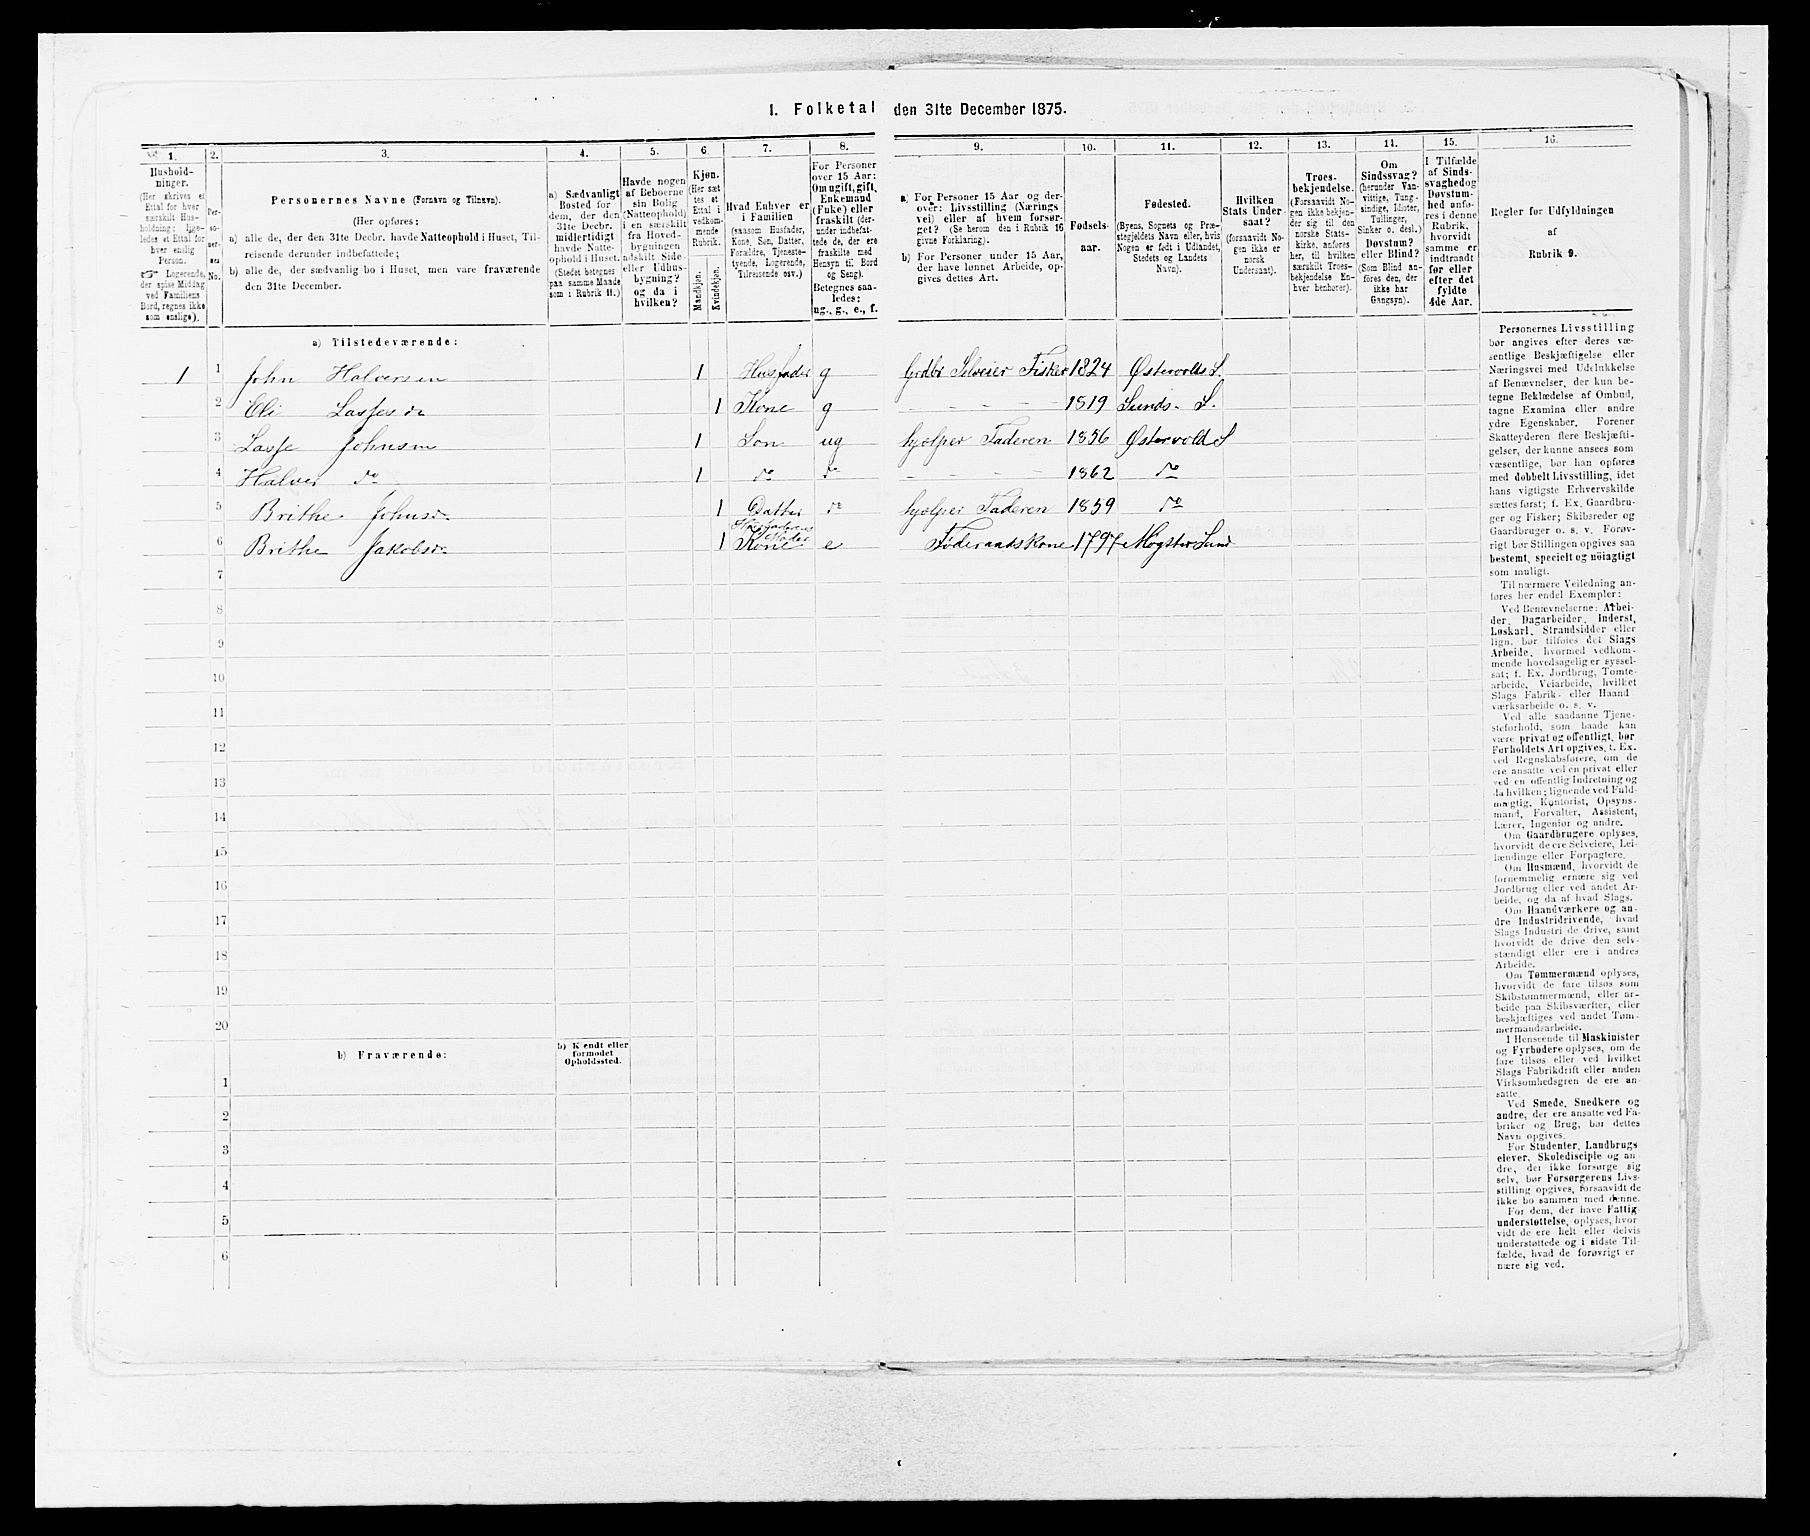 I. Folketal den 31te December 1875.
1.
2.
3.
4.
5.
6.
7.
8.
9.
10.
11.
12.
13.
14.
15.
16.
Hushold-
ninger.
(Her skrives et
Ettal for hver
særskilt Hus-
holdning; lige-
ledes et Ettal for
hver enslig
Person.
Logerende,
der spise Middag
ved Familiens
Bord, regnes ikke
som enslige).
Per-
so-
ner-
nes
No.
Personernes Navne (Fornavn og Tilnavn).
(Her opføres:
a) alle de, der den 31te Decbr. havde Natteophold i Huset, Til-
reisende derunder indbefattede;
b) alle de, der sædvanlig bo i Huset, men vare fraværende
den 31te December.
a) Sædvanligt
Bosted for
dem, der den
31te Decbr.
midlertidigt
havde Natte-
ophold i Huset.
(Stedet betegnes
paa samme Maade
som i Rubrik 11.)
Havde nogen
af Beboerne
sin Bolig
(Natteophold)
i en særskilt
fra Hoved-
bygningen
adskilt Side-
eller Udhus-
bygning?
og da i
hvilken?
Kjøn.
(Her sæt
tes et
Ettal i
vedkom-
mende
Rubrik.
Mandskjøn.
Kvindekjøn.
Hvad Enhver er
i Familien
(saasom Husfader,
Kone, Søn, Datter,
Forældre, Tjeneste-
tyende, Logerende,
Tilreisende osv.)
For Personer
over 15 Aar:
Om ugift, gift,
Enkemand
(Enke) eller
fraskilt (der-
under indbefat-
tede de, der ere
fraskilte med
Hensyn til Bord
og Seng).
Betegnes saa-
ledes:
ug., g., e., f.
a) For Personer 15 Aar og der-
over: Livsstilling (Nærings
vei) eller af hvem forsør-
get? (Se herom den i Rubrik 16
givne Forklaring).
b) For Personer under 15 Aar,
der have lønnet Arbeide, op-
gives dettes Art.
Fødsels-
aar.
Fødested.
(Byens, Sognets og Præ-
stegjeldets Navn eller, hvis
Nogen er født i Udlandet,
Stedets og Landets
Navn).
Hvilken
Stats Under-
saat?
(forsaavidt No-
gen ikke er
norsk
Undersaat).
Troes-
bekjendelse.
(Forsaavidt No-
gen ikke bekjen-
der sig til den
norske Stats-
kirke, anføres
her, til hvilken
særskilt Troes-
bekjendelse En-
hver henhører).
Om
Sindssvag?
(herunder Van-
vittige, Tung-
sindige, Idioter,
Tullinger,
Sinker o. desl.)
Døvstum?
eller Blind?
(Som Blind an-
føres den, der
ikke har
Gangsyn).
I Tilfælde
af Sinds-
svaghed og
Døvstum-
hed anfø-
res i denne
Rubrik,
hvorvidt
samme er
indtraadt
før eller
efter det
fyldte
4de Aar.
Regler for Udfyldningen
af
Rubrik 9.
a) Tilstedeværende:
1 1 John Halversen 1 Husfader g Grdbr Selveier Fisker 1824 Østervolds S.
2 Eli Lassesdr 1 Kone g - - - - 1819 Sunds. S.
3 Lasse Johnsen 1 Søn ug hjelper Faderen 1856 Østervold S
4 Halver do 1 do do - - - - 1862 do
5 Brithe Johnsdr 1 Datter do hjelper Faderen 1859 do
Husfaderens Moder
6 Brithe Jakobsdr 1 Kone e Føderaadskone 1797 Møgster Sund
7
8
9
10
11
12
13
14
15
16
17
18
19
20
b) Fraværende:
b) Kjendt eller
formodet
Opholdssted.
1
2
3
4
5
6
Personernes Livsstilling
bør angives efter deres væ-
sentlige Beskjæftigelse eller
Næringsvei med Udelukkelse
af Benævnelser, der kun be-
tegne Beklædelse af Ombud,
tagne Examina eller andre
ydre Egenskaber. Forener
Skatteyderen flere Beskjæfti-
gelser, der kunne ansees som
væsentlige, bør han opføres
med dobbelt Livsstilling, idet
hans vigtigste Erhvervskilde
sættes først; f. Ex. Gaardbru-
ger og Fisker; Skibsreder og
Gaardbruger o. s. v. Forøv-
rigt bør Stillingen opgives saa
bestemt, specielt og nøiagtigt
som muligt.
Til nærmere Veiledning an-
føres her endel Exempler:
Ved Benævnelserne: Arbei-
der, Dagarbeider, Inderst,
Løskarl, Strandsidder eller
lign. bør tilføies det Slags
Arbeide, hvormed vedkom-
mende hovedsagelig er syssel-
sat; f. Ex. Jordbrug, Tomte-
arbeide, Veiarbeide, hvilket
Slags Fabrik- eller Haand
værksarbeide o. s. v.
Ved alle saadanne Tjene-
steforhold, som baade kan
være privat og offentligt, bør
Forholdets Art opgives, t. Ex.
ved Regnskabsførere, om de
ere ansatte ved en privat eller
ved en offentlig Indretning og
da hvilken; lignende ved Fuld-
mægtig, Kontorist, Opsyns-
mand, Forvalter, Assistent,
Lærer, Ingeniør og andre.
Om Gaardbrugere oplyses,
hvorvidt de ere Selveiere, Lei-
lændinge eller Forpagtere.
Om Husmænd, hvorvidt de
fornemmelig ernære sig ved
Jordbrug eller ved andet Ar-
beide, og da af hvad Slags.
Om Haandværkere og an-
dre Industridrivende, hvad
Slags Industri de drive, samt
hvorvidt de drive den selv-
stændigt eller ere i andres
Arbeide.
Om Tømmermænd oplyses,
hvorvidt de fare tilsøs som
Skibstømmermænd, eller ar-
beide paa Skibsværfter, eller
beskjæftiges ved andet Tøm-
mermandsarbeide.
I Henseende til Maskinister
og Fyrbødere oplyses, om de
fare tilsøs eller ved hvilket
Slags Fabrikdrift eller anden
Virksomhedsgren de ere an-
satte.
Ved Smede, Snedkere og
andre, der ere ansatte ved Fa-
briker og Brug, bør dettes
Navn opgives.
For Studenter, Landbrugs
elever, Skoledisciple og an-
dre, der ikke forsørge sig
selv, bør Forsørgerens Livs-
stilling opgives, forsaavidt de
ikke bo sammen med denne.
For dem, der have Fattig-
understøttelse, oplyses, hvor
vidt de ere helt eller delvis
understøttede og i sidste Til-
fælde, hvad de forøvrigt er
nære sig ved.